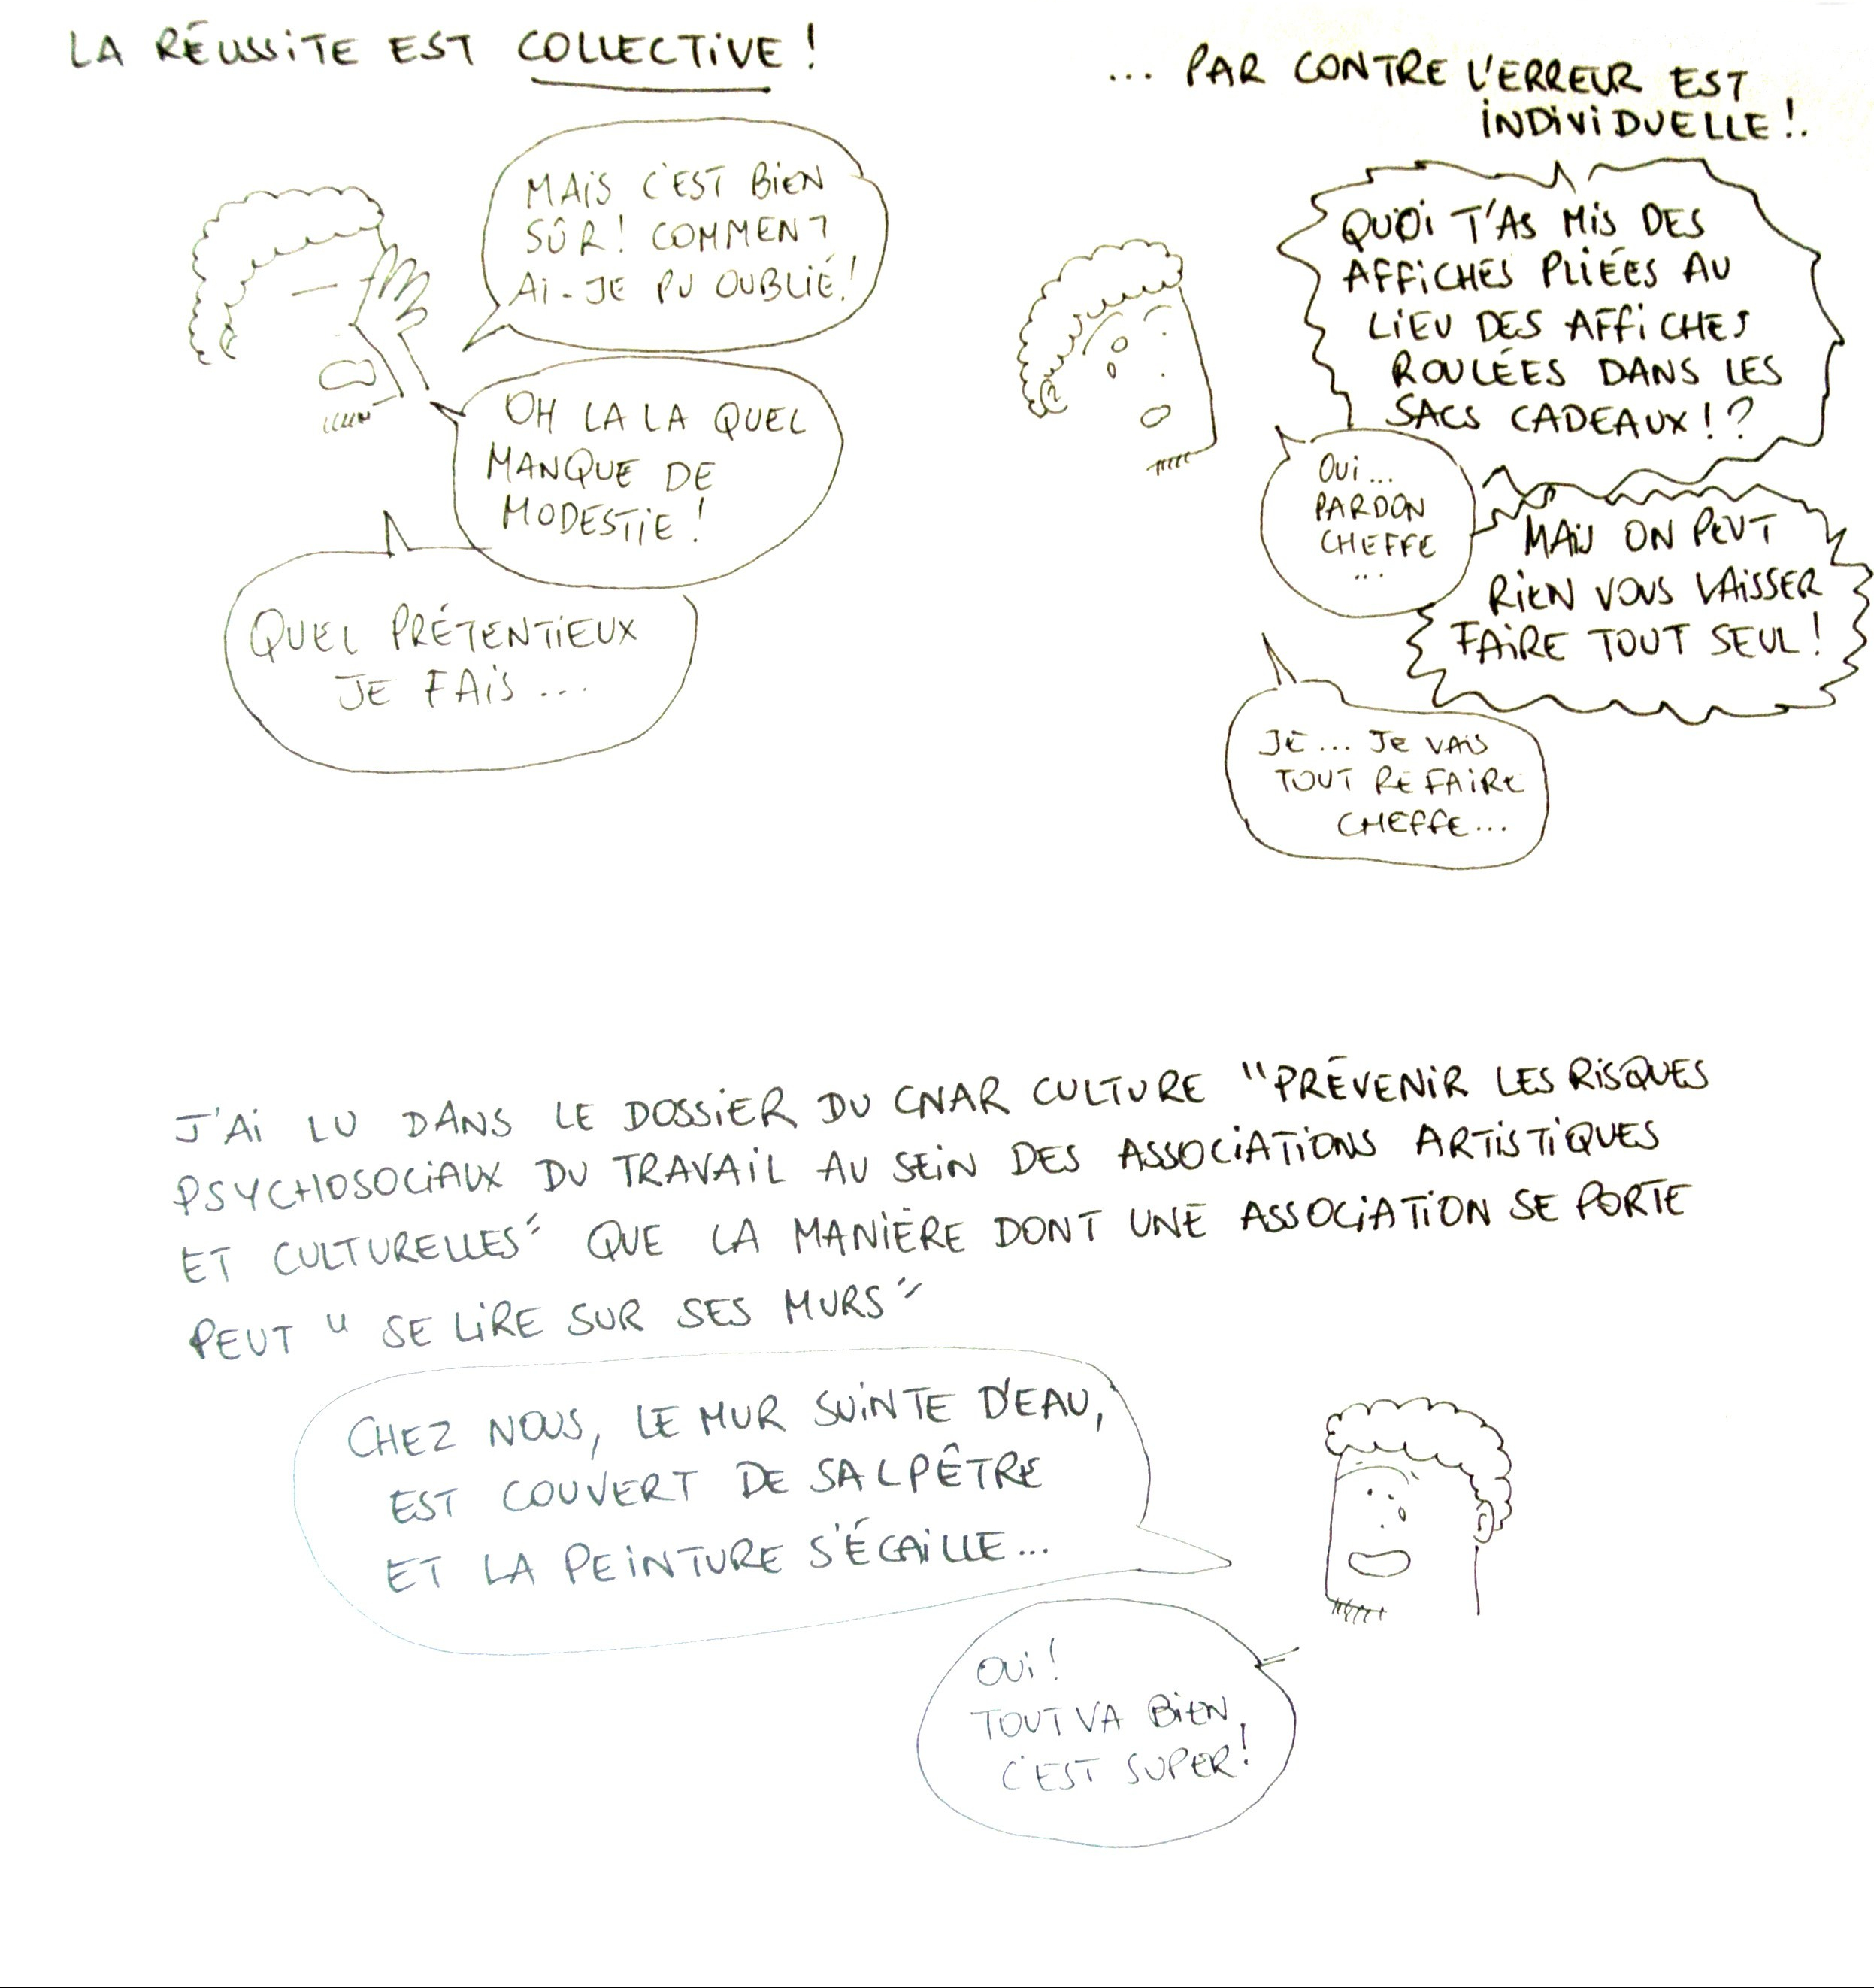 LA RÉUSSITE EST COLLECTIVE !
MAIS C'EST BIEN
SÛR ! COMMENT
AI-JE PU OUBLIÉ !
OH LA LA QUEL
MANQUE DE
MODESTIE !
QUEL PRÉTENTIEUX
JE FAIS ...
... PAR CONTRE L'ERREUR EST
INDIVIDUELLE !.
QUOI T'AS MIS DES
AFFICHES PLIÉES AU
LIEU DES AFFICHES
ROULÉES DANS LES
SACS CADEAUX ! ?
OUI ...
PARDON
CHEFFE
...
MAIS ON PEUT
RIEN VOUS LAISSER
FAIRE TOUT SEUL !
JE ... JE VAIS
TOUT REFAIRE
CHEFFE ...
J'AI LU DANS LE DOSSIER DU CNAR CULTURE "PRÉVENIR LES RISQUES
PSYCHOSOCIAUX DU TRAVAIL AU SEIN DES ASSOCIATIONS ARTISTIQUES
ET CULTURELLES" QUE LA MANIÈRE DONT UNE ASSOCIATION SE PORTE
PEUT " SE LIRE SUR SES MURS "
CHEZ NOUS, LE MUR SUINTE D'EAU,
EST COUVERT DE SALPÊTRE
ET LA PEINTURE S'ÉCAILLE ...
OUI !
TOUT VA BIEN,
C'EST SUPER !